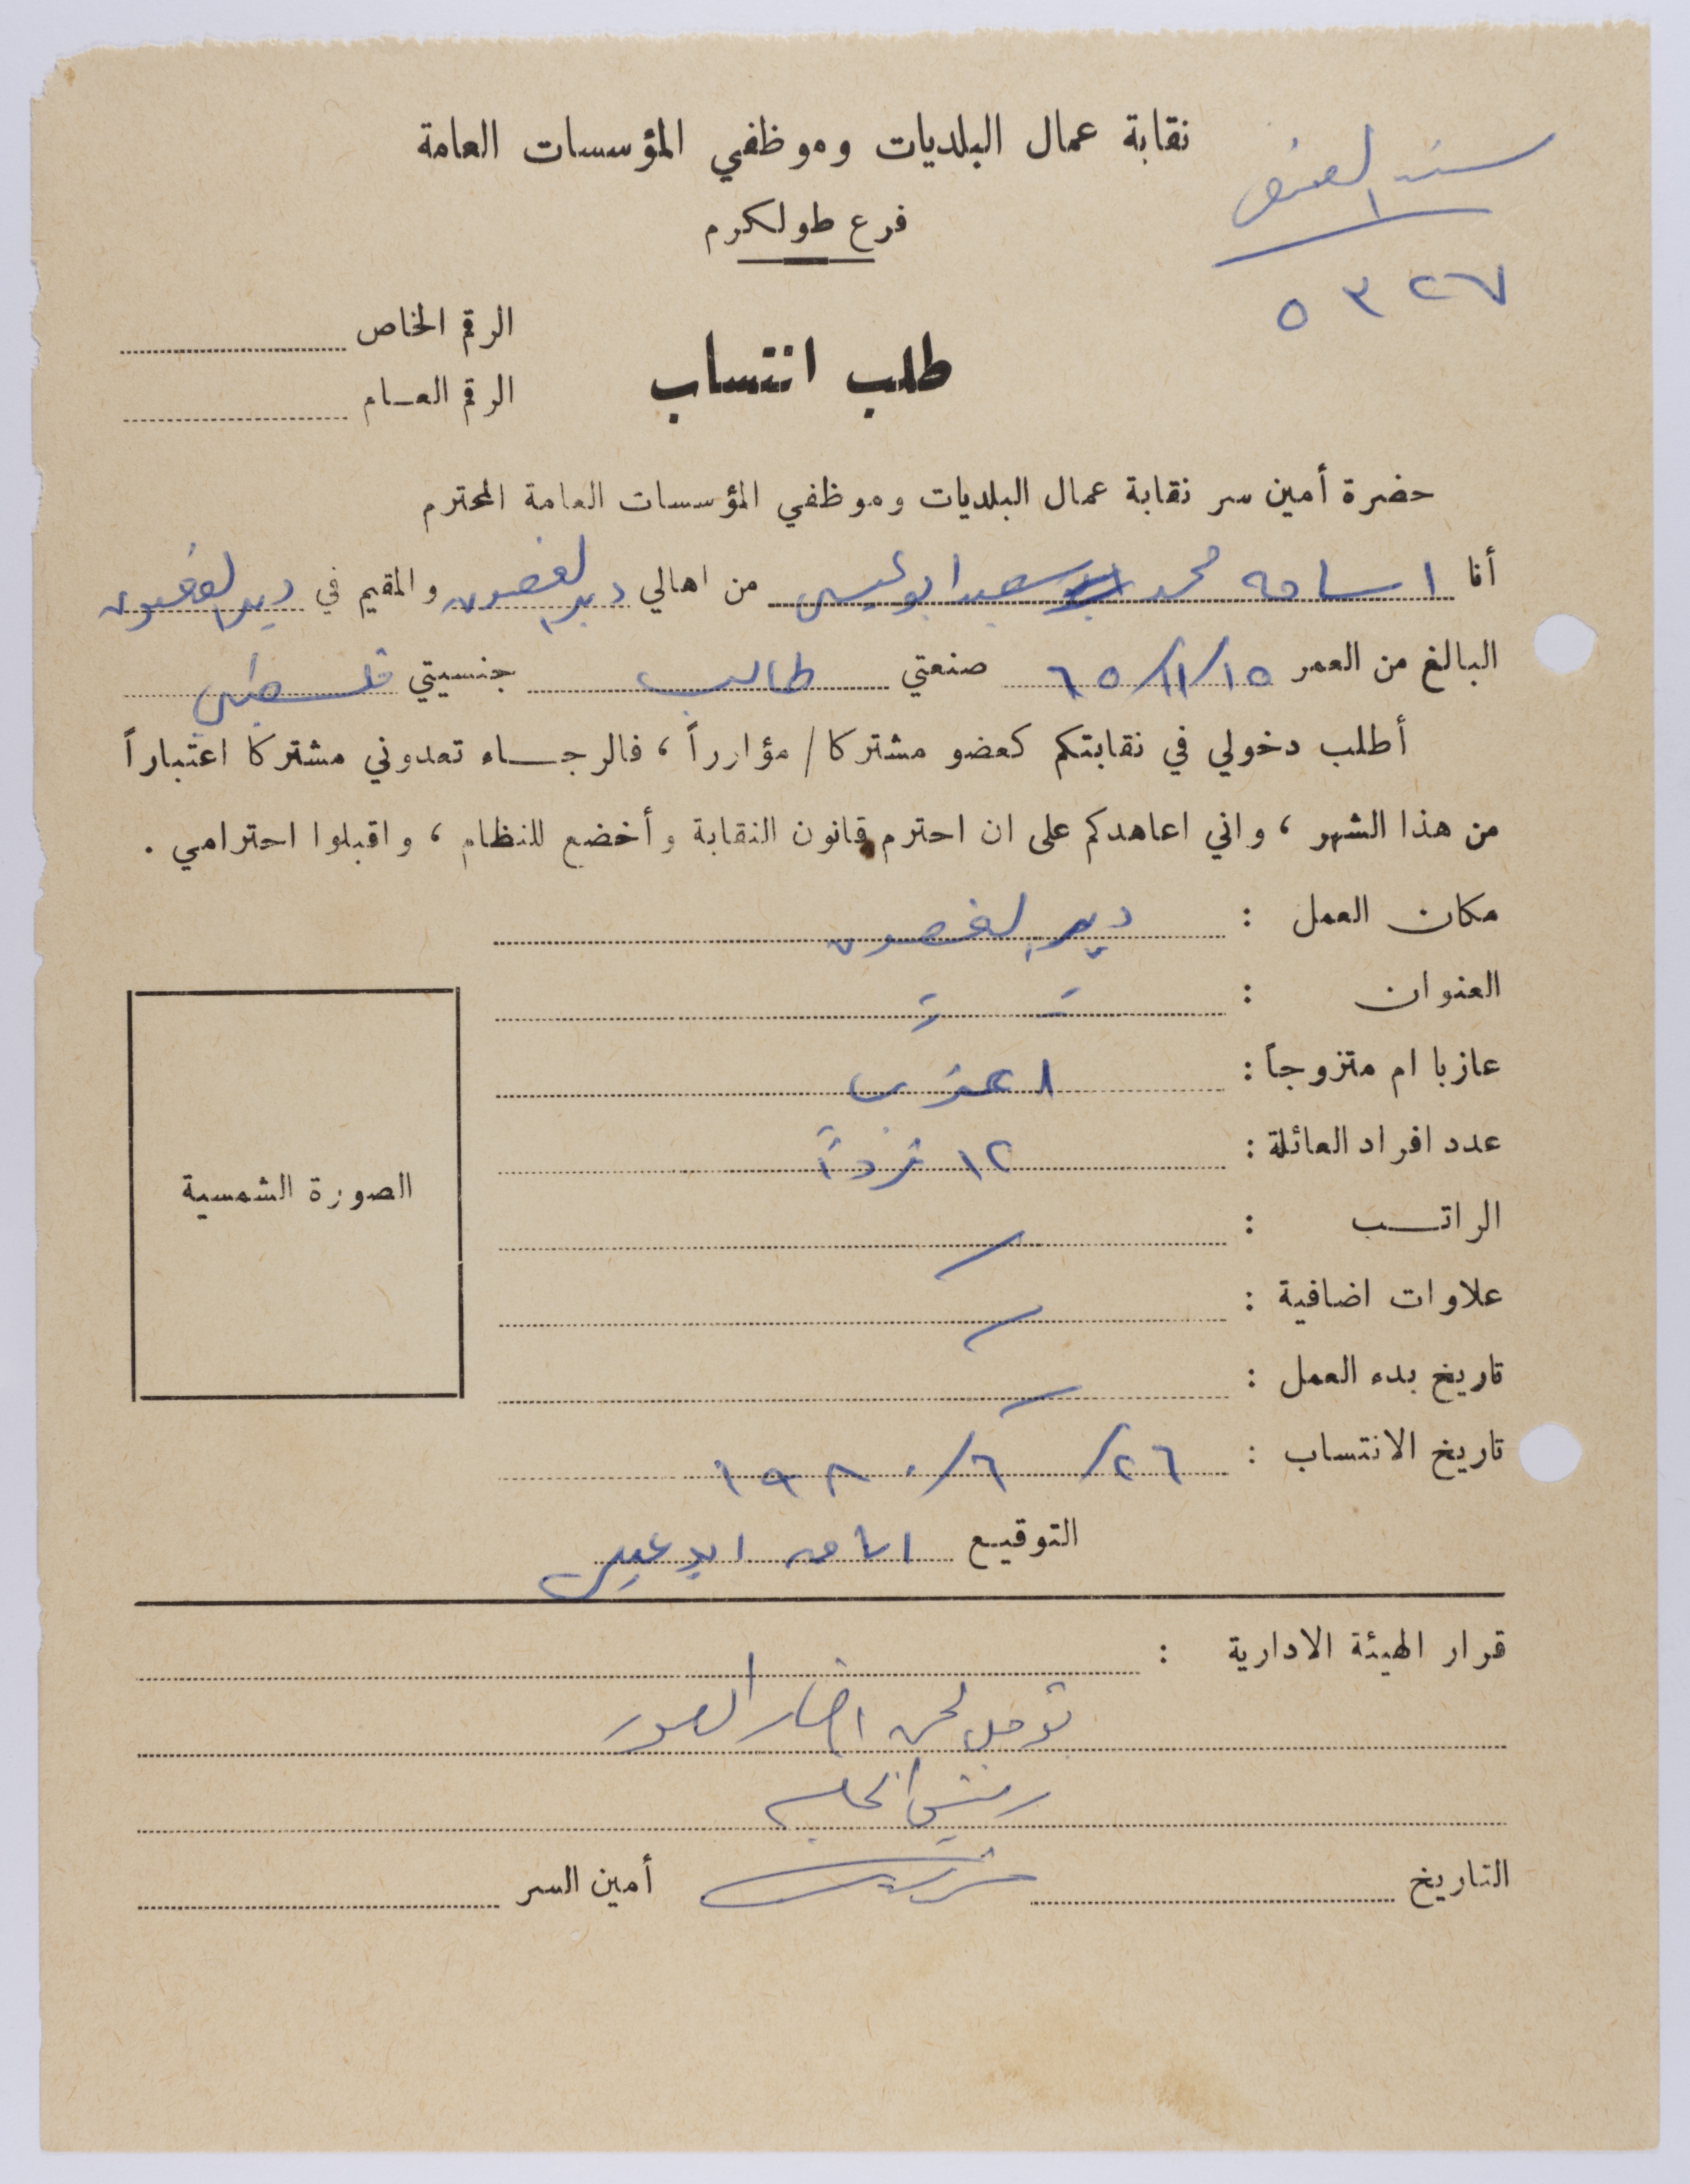 نقابة عمال البلديات وموظفي المؤسسات العامة
سند القبض
فرع طولكرم
٥٣٢٧
الرقم الخاص
طلب انتساب
الرقم العام
حضرة أمين سر نقابة عمال البلديات وموظفي المؤسسات العامة المحترم
أنا اسامه محمد سعيد ابو عيسى من اهالي دير الغصون والمقيم في دير الغصون
البالغ من العمر ١٥/١١/٦٥ صنعتي طالب جنسيتي فلسطيني
أطلب دخولي في نقابتكم كعضو مشتركا / مؤازراً ، فالرجاء تعدوني مشتركا اعتباراً
من هذا الشهر ، واني اعاهدكم على ان احترم قانون النقابة وأخضع للنظام ، واقبلوا احترامي .
مكان العمل : دير الغصون
العنوان : = =
عازبا ام متزوجاً : اعزب
عدد افراد العائلة : ١٢ فرداً
الصورة الشمسية
الراتب : /
علاوات اضافية : /
تاريخ بدء العمل : /
تاريخ الانتساب : ٢٦/٦/١٩٨٠
التوقيع اسامه ابو عيسى
قرار الهيئة الادارية :
توجل لحين احضار الصور
رئيس الجلسه
التاريخ أمين السر